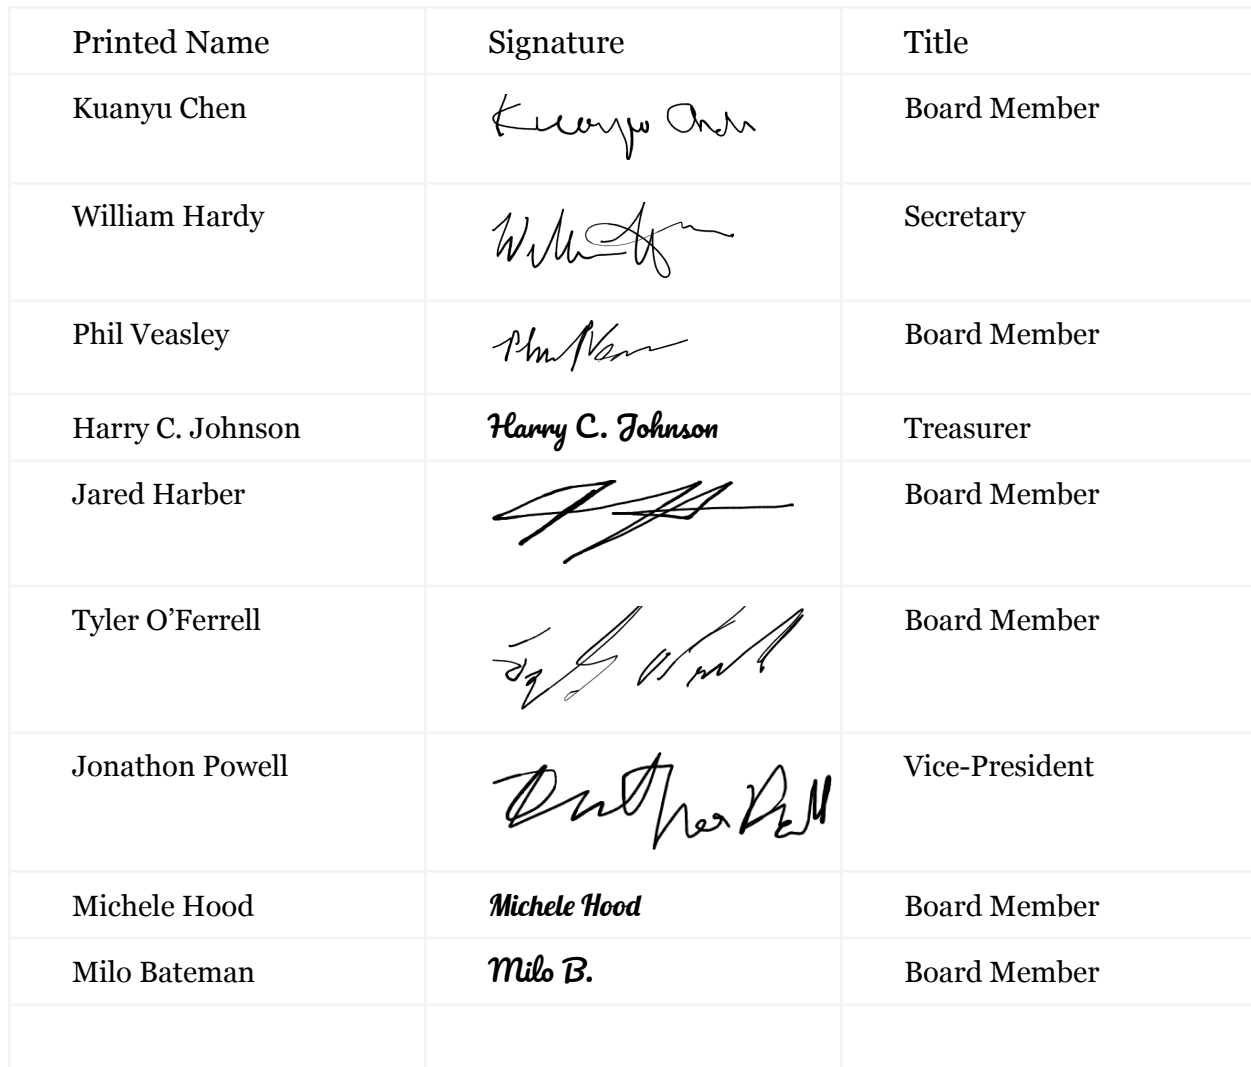 Printed Name Signature Title
Kuanyu Chen Kuanyu Chen Board Member
William Hardy Secretary
Phil Veasley Board Member
Harry C. Johnson Harry C. Johnson Treasurer
Jared Harber Board Member
Tyler O’Ferrell Board Member
Jonathon Powell Vice-President
Michele Hood Michele Hood Board Member
Milo Bateman Milo B. Board Member